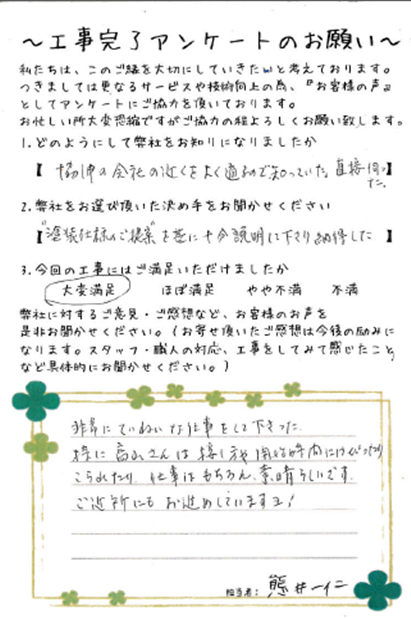 ～工事完了アンケートのお願い～
私たちは、このご縁を大切にしていきたいと考えております。
つきましては更なるサービスや技術向上の為、『お客様の声』
としてアンケートにご協力を頂いております。
お忙しい所大変恐縮ですがご協力の程よろしくお願い致します。
1.どのようにして弊社をお知りになりましたか
【 の会社の近くをよく通るので知っていた。直接伺い】
た。
2.弊社をお選び頂いた決め手をお聞かせください
【"塗装仕様のご提案"を基に十分説明に下さり納得した 】
3.今回の工事にはご満足いただけましたか
大変満足 ほぼ満足 やや不満 不満
弊社に対するご意見・ご感想など、お客様のお声を
是非お聞かせください。(お寄せ頂いたご感想は今後の励みに
なります。スタッフ・職人の対応、工事をしてみて感じたこと
など具体的にお聞かせください。)
非常にていねいな仕事をして下さった。
特に さんは 開始時
こられたり、仕事はもちろん、素晴らしいです。
ご近所にもお進めしていますヨ!
担当者: 熊井